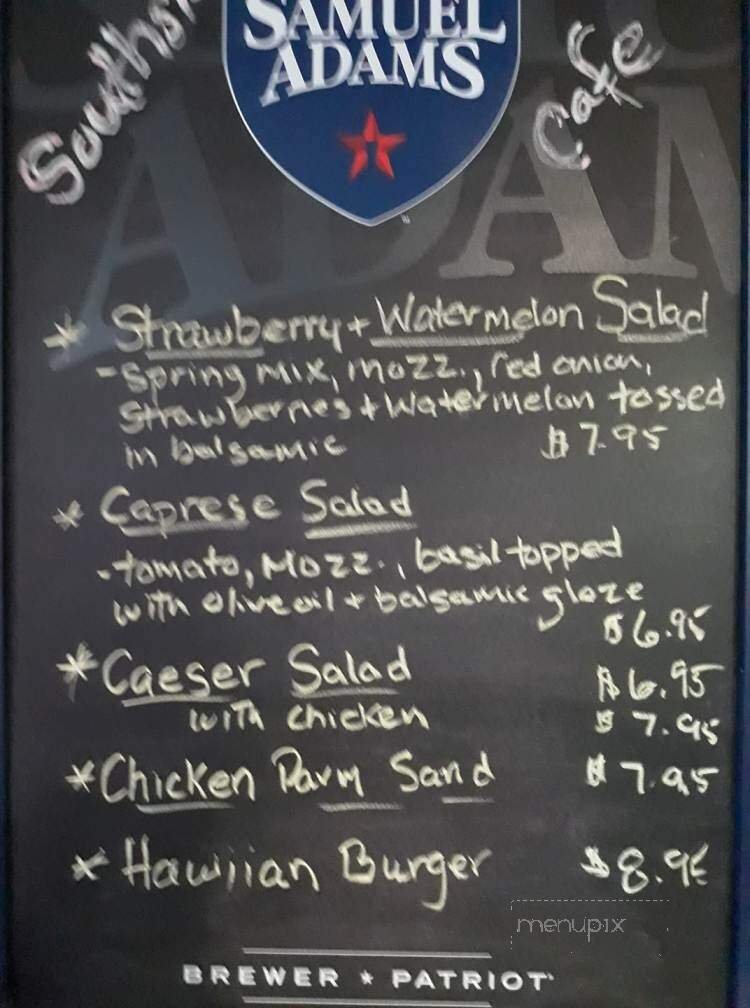 SAMUEL
ADAMS
Cafe
* Strawberry + Watermelon Salad
- Spring mix, mozz., red onion,
strawberries + watermelon tossed
in balsamic $7.95
* Caprese Salad
- tomato, Mozz., basil topped
with olive oil + balsamic glaze
$6.95
* Caeser Salad $6.95
with chicken $7.95
* Chicken Parm Sand $7.95
* Hawiian Burger $8.95
menupix
BREWER ★ PATRIOT